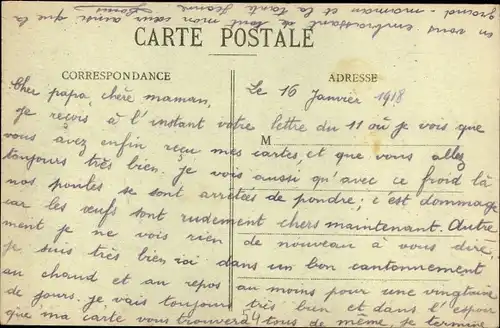 CARTE POSTALE
CORRESPONDANCE
ADRESSE
Le 16 Janvier 1918
Cher papa, chère maman,
Je reçois à l'instant votre lettre du 11 où je vois que
M
vous avez enfin reçu mes cartes, et que vous allez
toujours très bien. Je vois aussi qu'avec ce froid là
nos poules se sont arrêtées de pondre; c'est dommage
car les œufs sont rudement chers maintenant. Autre
ment je ne vois rien de nouveau à vous dire,
je suis très bien ici dans un bon cantonnement
au chaud et au repos au moins pour une vingtaine
de jours. je vais toujours très bien et dans l'espoir
que ma carte vous trouvera tous de même, je termine
54
en vous embrassant de tout mon cœur ainsi que la
grand-maman et la tante Jeanne